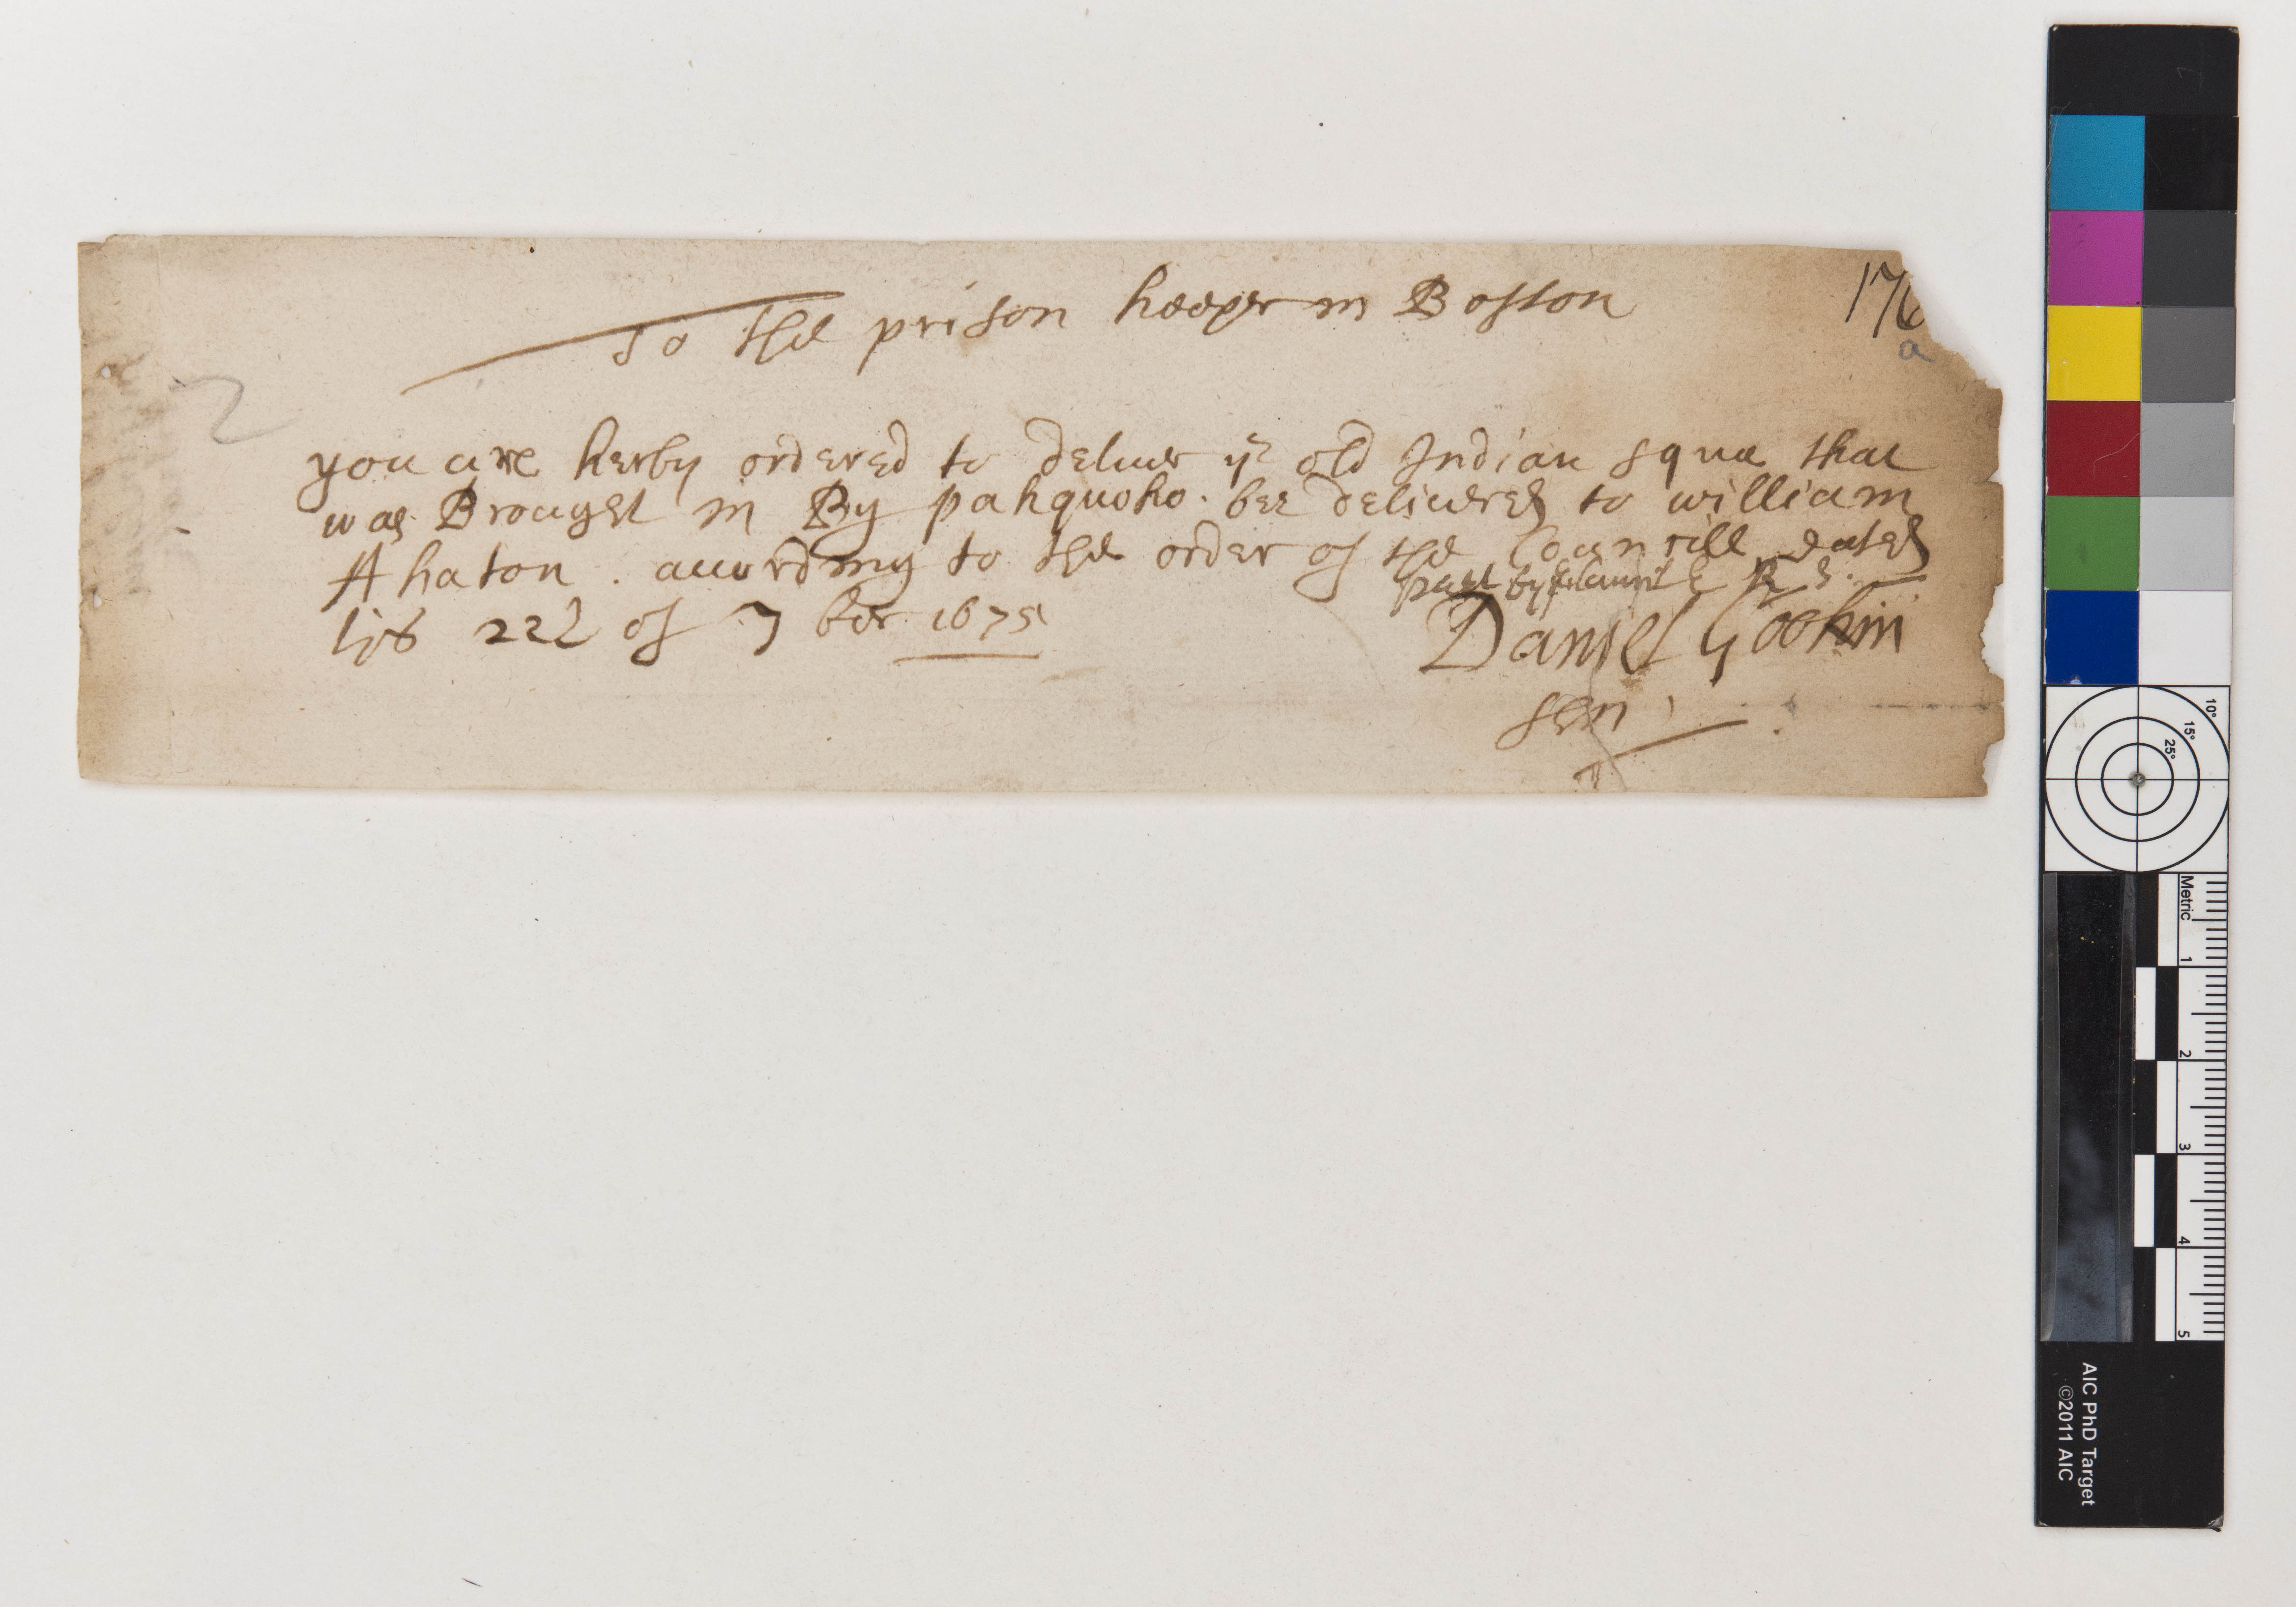 176
a
To the prison keeper in Boston
2
you are herby ordered to deliuer ye old Indian squa that
was Brought in By pahquoho. bee deliuered to william
Ahaton. according to the order of the Councill dated
this 22d of 7 ber 1675
past by ye Councill E R S.
Daniel Gookin
sen
10°
15°
25°
Metric
1
2
3
4
5
AIC PhD Target
©2011 AIC